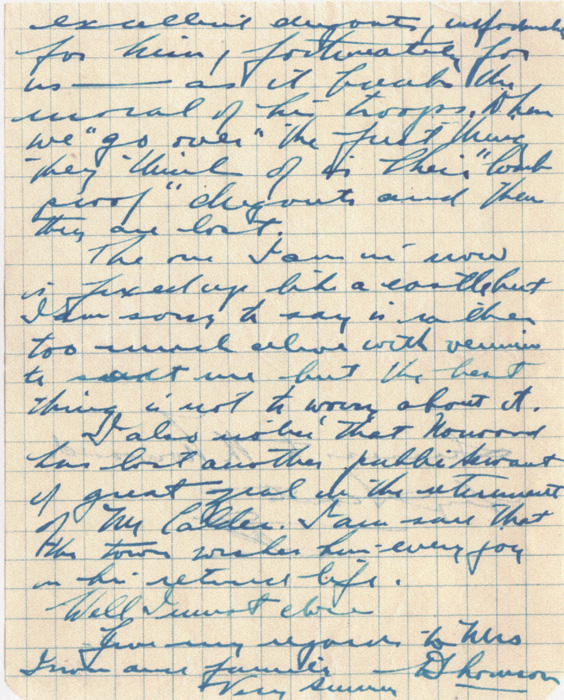 excellent dugouts, unfortunately
for him, fortunately for
us — as it breaks the
moral of his troops. When
we "go over" the first thing
they think of is their "bomb
proof" dugouts and then
they are lost.
The one I am in now
is fixed up like a castle but
I am sorry to say is rather
too much alive with vermin
to suit me but the best
thing is not to worry about it.
I also notice that Norwood
has lost another public servant
of great zeal in the retirement
of Mr Calder. I am sure that
the town wishes him every joy
in his retired life.
Well I must close
Give my regards to Mrs
and family
Very sincere